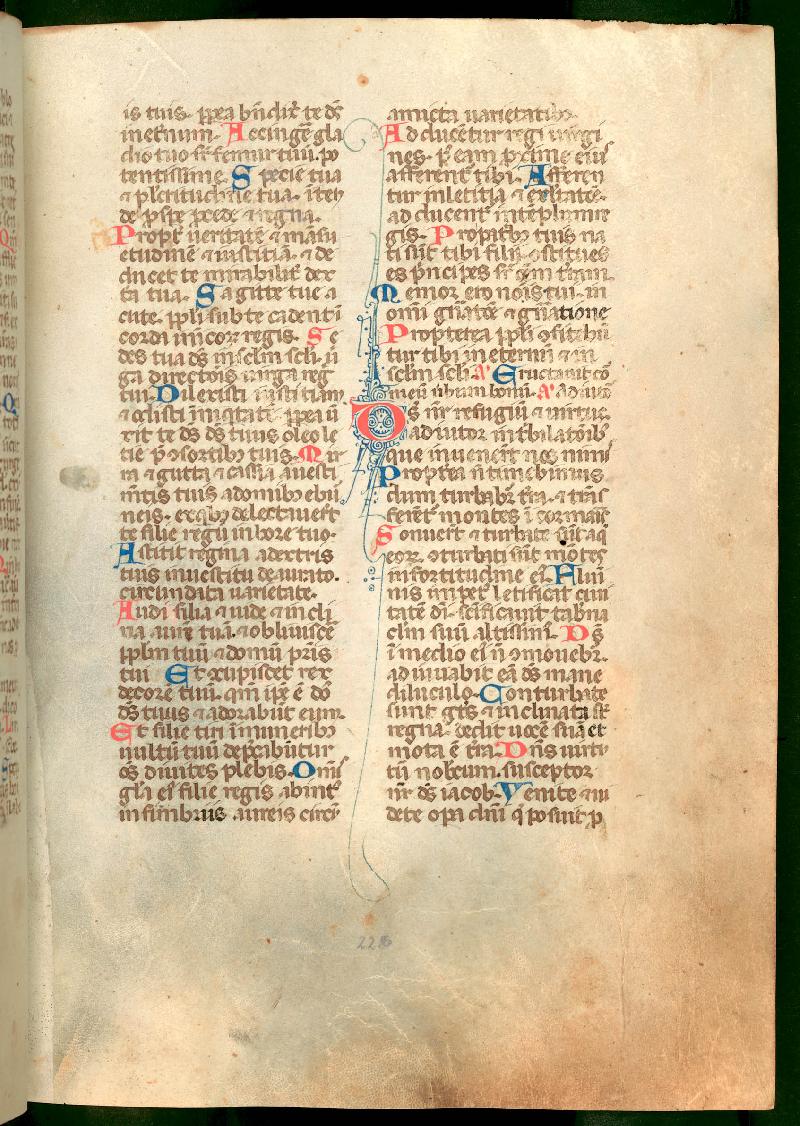 is tuis. ꝓpt̾ea bn̄dix̾ te dꝰ
in et̾num. Accinge̾ gla
dio tuo sr̾ femur tuū. po
tentissime. Specie tua
⁊ pl̾critudine tua. ītēn
de ꝓspe ꝓcede ⁊ regna.
Propt̾ ueritatē ⁊ māsu
etudinē ⁊ iustitiā. ⁊ de
ducet te mirabilit̾ dex
ta tua. Sagitte tue a
cute. ppl̾i sub te cadent ī
corda inīcor regis. Se
des tua ds̄ in sclm scl̾i. ū
ga directōis uirga reg
tui. Dilexisti iustitiam
⁊ odisti iniqtatē ꝓpt̾ea ū
xit te ds̄ ds̄ tuus oleo le
titie p̄ ↄsortibȝ tuis. Mir
ra ⁊ gutta ⁊ cassia auesti
mtis tuis adomibȝ ebur
neis. ex qbȝ delectauert̾
te filie regū in hore tuo.
Astitit regina adextris
tuis in uestitu deaurato.
circundata uarietate.
Audi filia ⁊ uide ⁊ incli
na aurē tuā. ⁊ obliuisce̾
ppl̾m tuū ⁊ domū pr̄is
tui Et ↄcupiscet rex
decorē tuū. qm̄ ip̄e ē do
ds̄ tuus ⁊ adorabūt eum.
Et filie tiri ī muneribȝ
uultū tuū dep̄cabūtur
oēs diuites plebis. Omīs
gl̄a eiꝰ filie regis abint̾
in fimbriis aureis circū
amicta uarietatibȝ.
Adducētur regi uirgi
nes. p̄ eam ꝓxime eiꝰ
afferent̾ tibi. Afferen
tur in letitia ⁊ exltatōe.
adducent̾ in tēplum re
gis. Pro pr̄ibȝ tuis na
ti sūt tibi filii ↄstitues
eos p̄ncipes sr̾ ōm tr̄am.
Memor ero nōis tui. in
omī gn̄atōe ⁊ gn̄atione
Propterea ppl̾i ↄfitebū
tur tibi in eternū ⁊ in
sclm scl̾i A Eructauit cō
meū ūbum bonū. A Adiuuā
Ds̄ nr̄ refugiū ⁊ uirtus.
adiutor in tr̾bilatōibȝ
que inuenert̾ nos nimiꝰ
Proptea n̄ timebimus
dum turbabr̾ tr̄a. ⁊ trās
ferēt montes ī cor maris
Sonuert̾ ⁊ turbate sūt aq
eorȝ ↄturbati sūt mōtes
in fortitudine eiꝰ. Flūi
nis impet̾ letificat ciui
tatē di. scīficauit tabna
clm suū altissimꝰ. Ds̄
ī medio eiꝰ n̄ ↄmouebr̾.
adiuuabit eā ds̄ mane
diluculo. Conturbate
sunt gtēs ⁊ inclinata st̾
regna. dedit uocē suā et
mota ē tr̄a. Dn̄s uirtu
tū nobcum. susceptor
nr̄ ds̄ iacob. Venite ⁊ ui
dete opa dn̄i q̄ posuit p